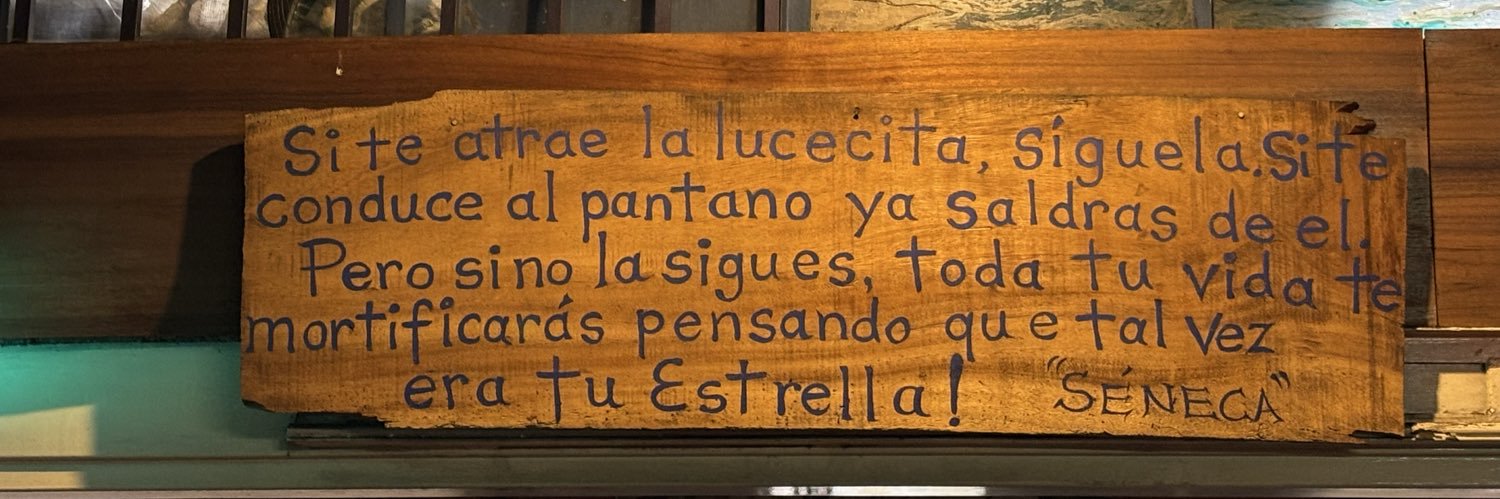 Si te atrae la lucecita, síguela. Si te
conduce al pantano ya saldras de el.
Pero sino la sigues, toda tu vida te
mortificarás pensando que tal vez
era tu Estrella! "SÉNECA"